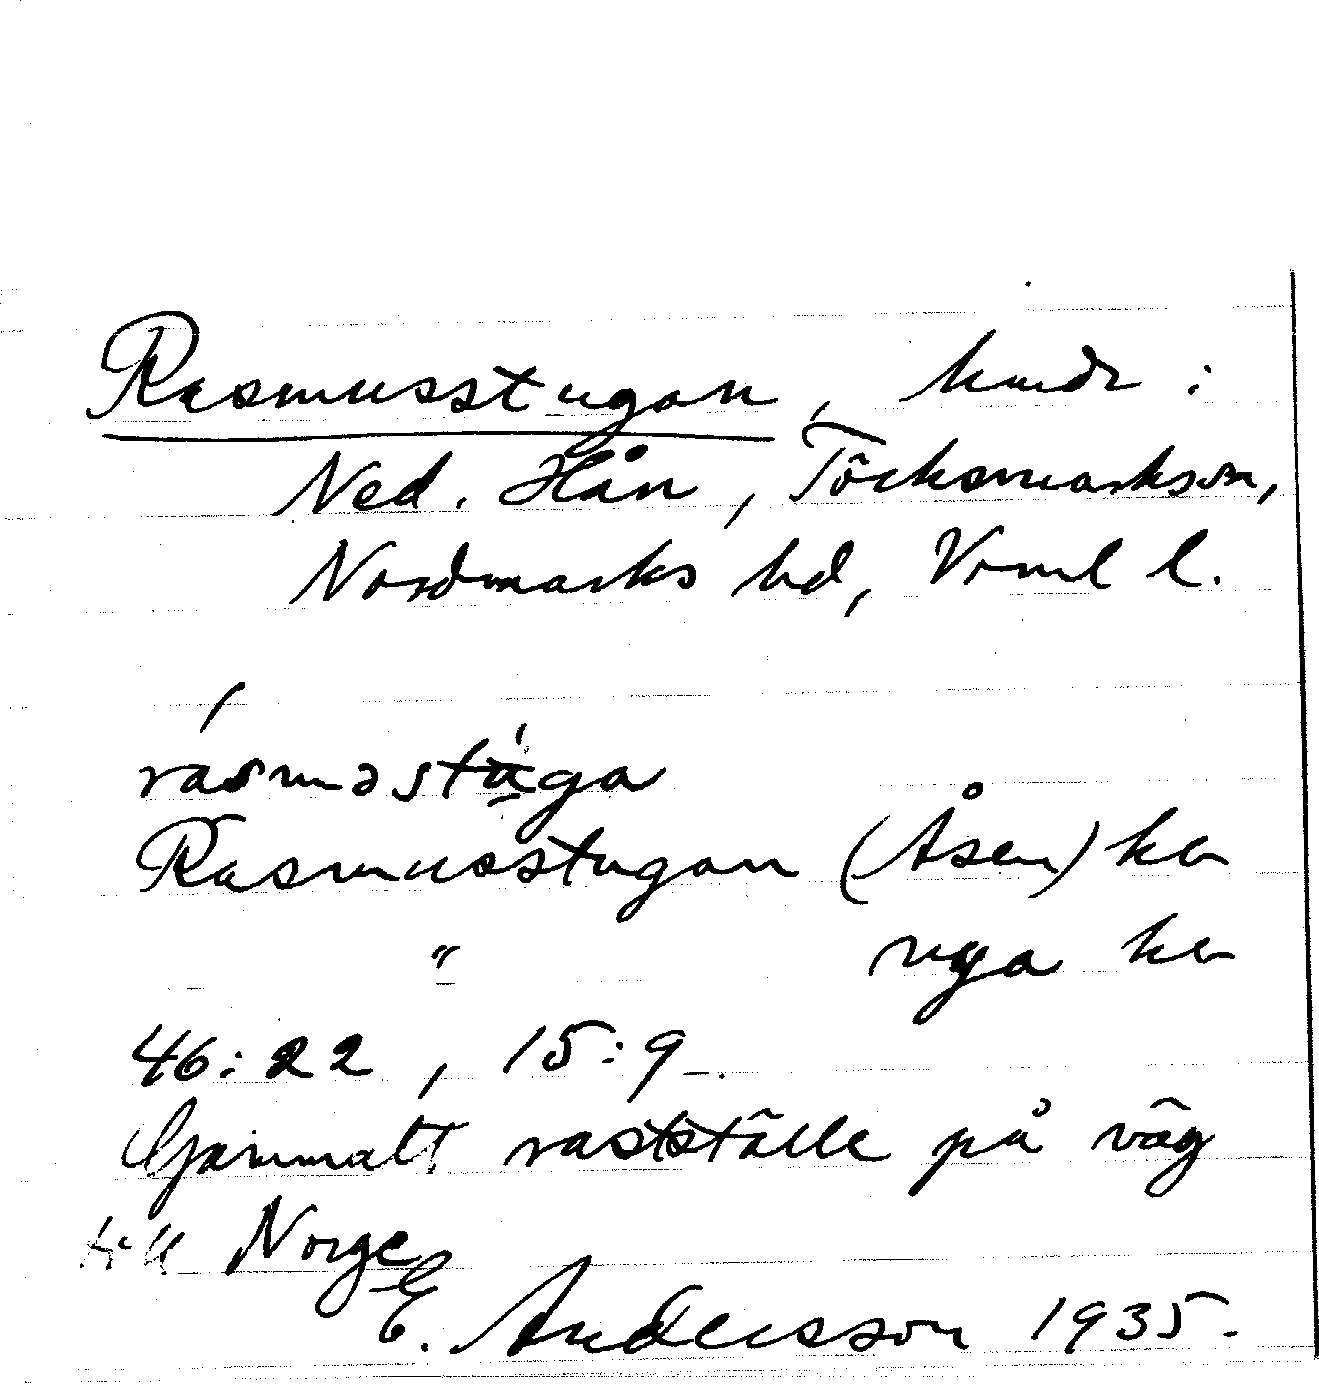 Rasmusstugan, hmdr :
Ned. Hån, Töcksmarks sn,
Nordmarks hd, Vrml l.
rasməstuga
Rasmusstugan (Åsen) ka
" nya ka
46:22, 15:9.
Gammalt rastställe på väg
till Norge
E. Andersson 1935.